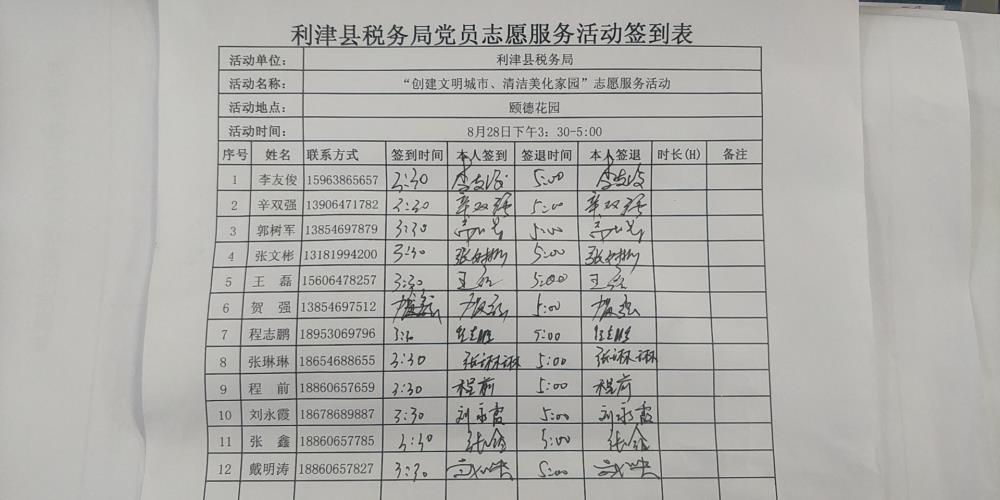 利津县税务局党员志愿服务活动签到表
活动单位： 利津县税务局
活动名称： “创建文明城市、清洁美化家园”志愿服务活动
活动地点： 颐德花园
活动时间： 8月28日下午3：30-5:00
序号 姓名 联系方式 签到时间 本人签到 签退时间 本人签退 时长(H) 备注
1 李友俊 15963865657 3:30 李友俊 5:00 李友俊
2 辛双强 13906471782 3:30 辛双强 5:00 辛双强
3 郭树军 13854697879 3:30 5:00
4 张文彬 13181994200 3:30 张文彬 5:00 张文彬
5 王 磊 15606478257 3:30 王磊 5:00 王磊
6 贺 强 13854697512 贺强 5:00 贺强
7 程志鹏 18953069796 3:30 程志鹏 5:00 程志鹏
8 张琳琳 18654688655 3:30 张琳琳 5:00 张琳琳
9 程 前 18860657659 3:30 程前 5:00 程前
10 刘永霞 18678689887 3:30 刘永霞 5:00 刘永霞
11 张 鑫 18860657785 3:30 张鑫 5:00 张鑫
12 戴明涛 18860657827 3:30 5:00